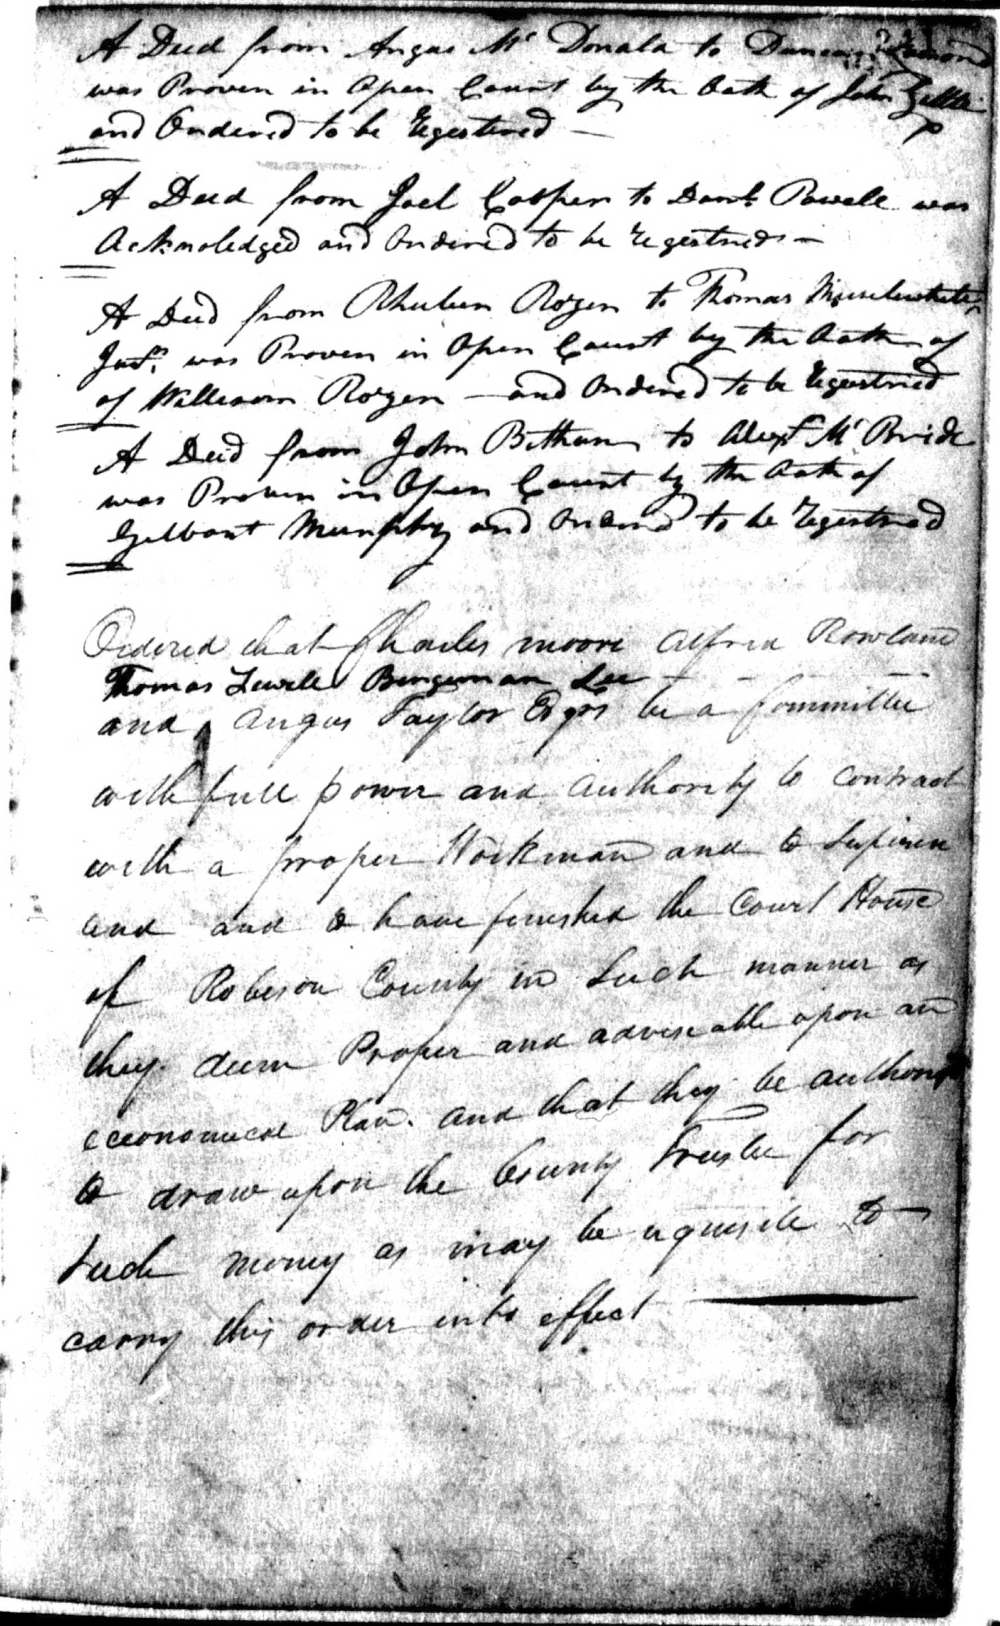 A Deed from Angus Mc Donald to Duncan
was Proven in Open Court by the Oath of John
and Ordered to be Regestered —
A Deed from Joel Cooper to Danl. Powell was
Acknoledged and Ordered to be Regestred —
A Deed from Rhuben Rozer to Thomas Musselwhite
Junr. was Proven in Open Court by the Oath of
of William Rozer — and Ordered to be Regestried
A Deed from John Bethune to Alexr Mc Bride
was Proven in Open Court by the Oath of
Gilbert Murphy and Ordered to be Regestried
Ordered that Charles moore Alfred Rowland
Thomas Lewell Bengeman Lee — — — —
and Angus Taylor Esqrs be a Committee
with full power and Authority to Contract
with a proper Workman and to
and and to have finished the Court House
of Robeson County in Such manner as
they deem Proper and adviseable upon an
economical Plan. and that they be
to draw upon the County Trustee for
Such money as may be requisite to
carry this order into effect